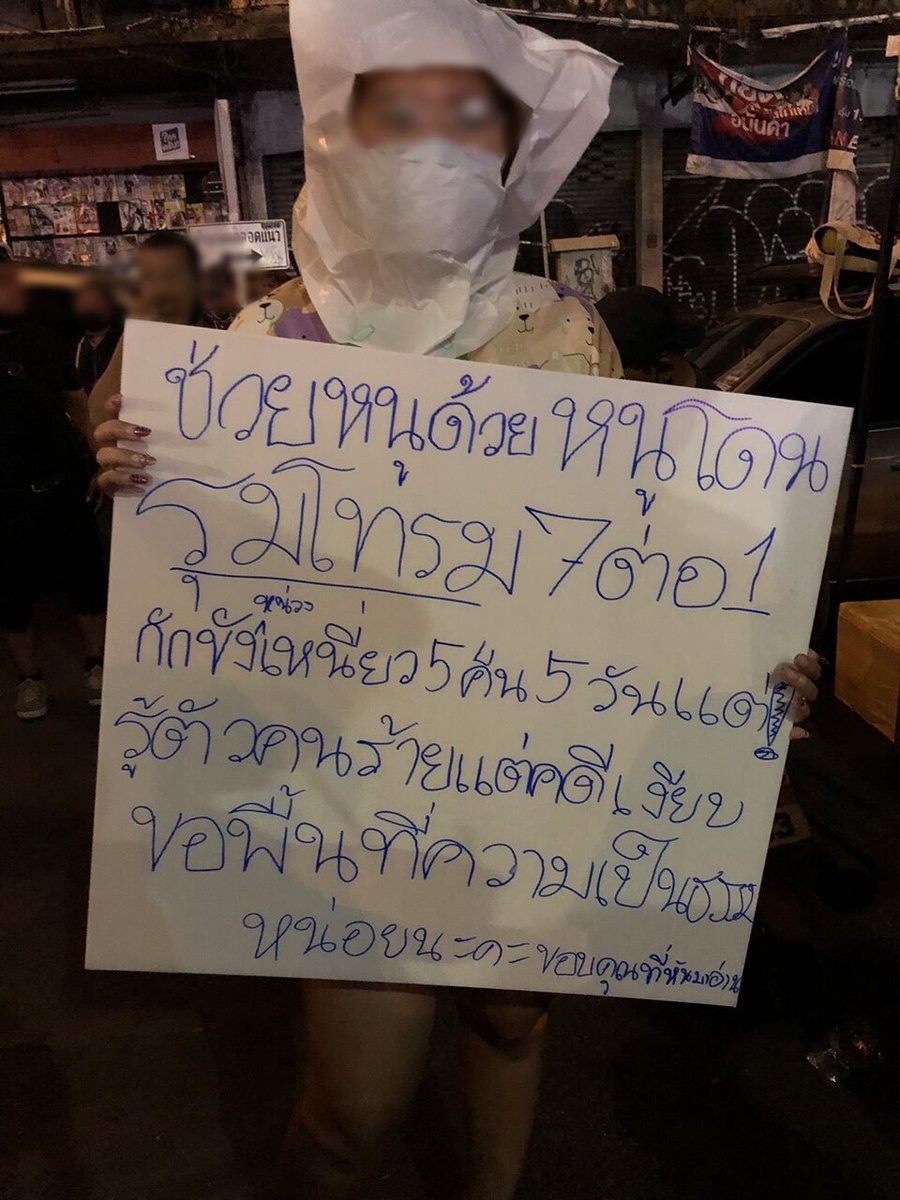 ช่วยหนูด้วย หนูโดน
รุมโทรม 7 ต่อ 1
กักขังหน่วงเหนี่ยว 5 คืน 5 วัน แต่!
รู้ตัวคนร้ายแต่คดีเงียบ
ขอพื้นที่ความเป็นธรรม
หน่อยนะคะ ขอบคุณที่หันมาอ่าน